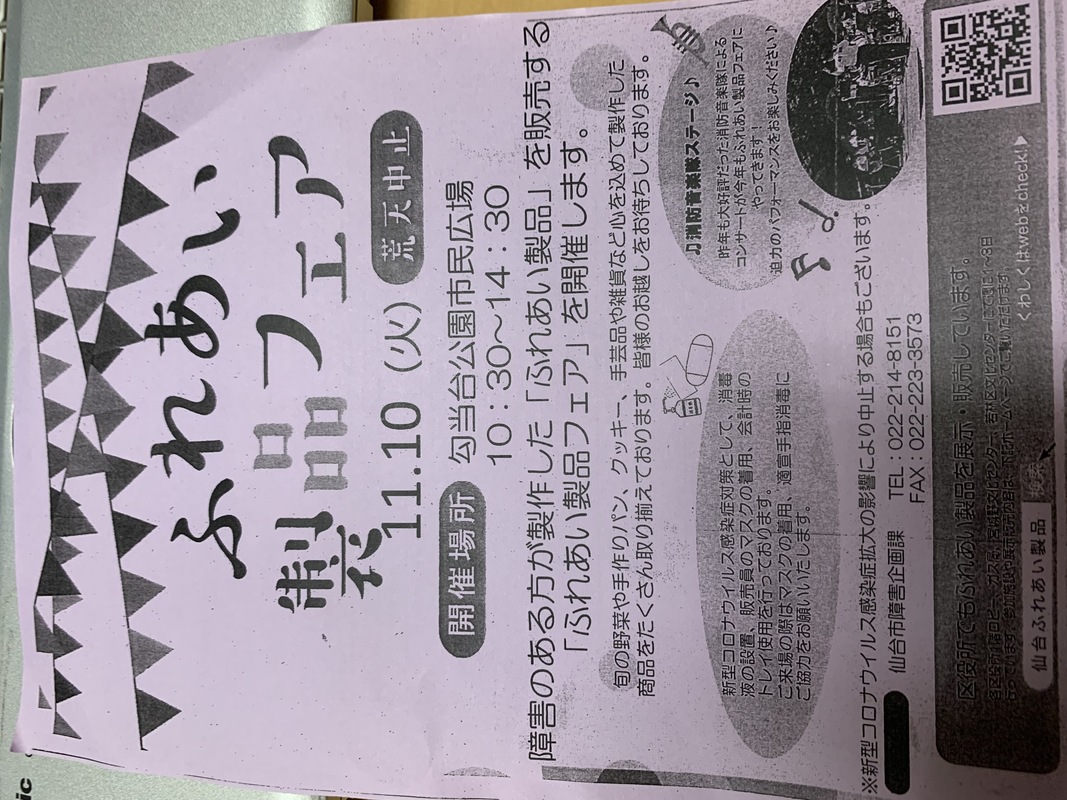 ふれあい
製品フェア
11.10（火） 荒天中止
開催場所 勾当台公園市民広場
10：30～14：30
障害のある方が製作した「ふれあい製品」を販売する
「ふれあい製品フェア」を開催します。
旬の野菜や手作りパン、クッキー、手芸品や雑貨など心を込めて製作した
商品をたくさん取り揃えております。皆様のお越しをお待ちしております。
新型コロナウイルス感染症対策として、消毒
液の設置、販売員のマスクの着用、会計時の
トレイ使用を行っております。
ご来場の際はマスクの着用、適宜手指消毒に
ご協力をお願いいたします。
♫消防音楽隊ステージ♪
昨年も大好評だった消防音楽隊による
コンサートが今年もふれあい製品フェアに
やってきます！
迫力のパフォーマンスをお楽しみください♪
※新型コロナウイルス感染症拡大の影響により中止する場合もございます。
仙台市障害企画課 TEL：022-214-8151
FAX：022-223-3573
区役所でもふれあい製品を展示・販売しています。
仙台ふれあい製品 検索
くわしくはwebをcheck!▶
ic